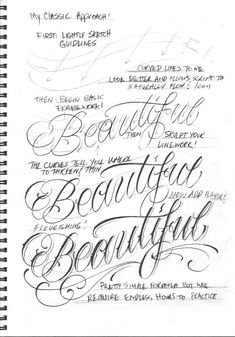 MY CLASSIC APPROACH!
FIRST: LIGHTLY SKETCH
GUIDLINES
CURVED LINES TO ME
LOOK BETTER AND ALLOWS SCRIPT TO
NATURALLY FLOW!
THEN: BEGIN BASIC
FRAMEWORK!
Beautiful
THEN SCULPT YOUR
LINEWORK!
THE CURVES TELL YOU WHERE
TO THICKEN/THIN
Beautiful
NOW ADD FLAVOR!
FLOURISHING!
Beautiful
PRETTY SIMPLE FORMULA BUT WILL
REQUIRE ENDLESS HOURS TO PRACTICE